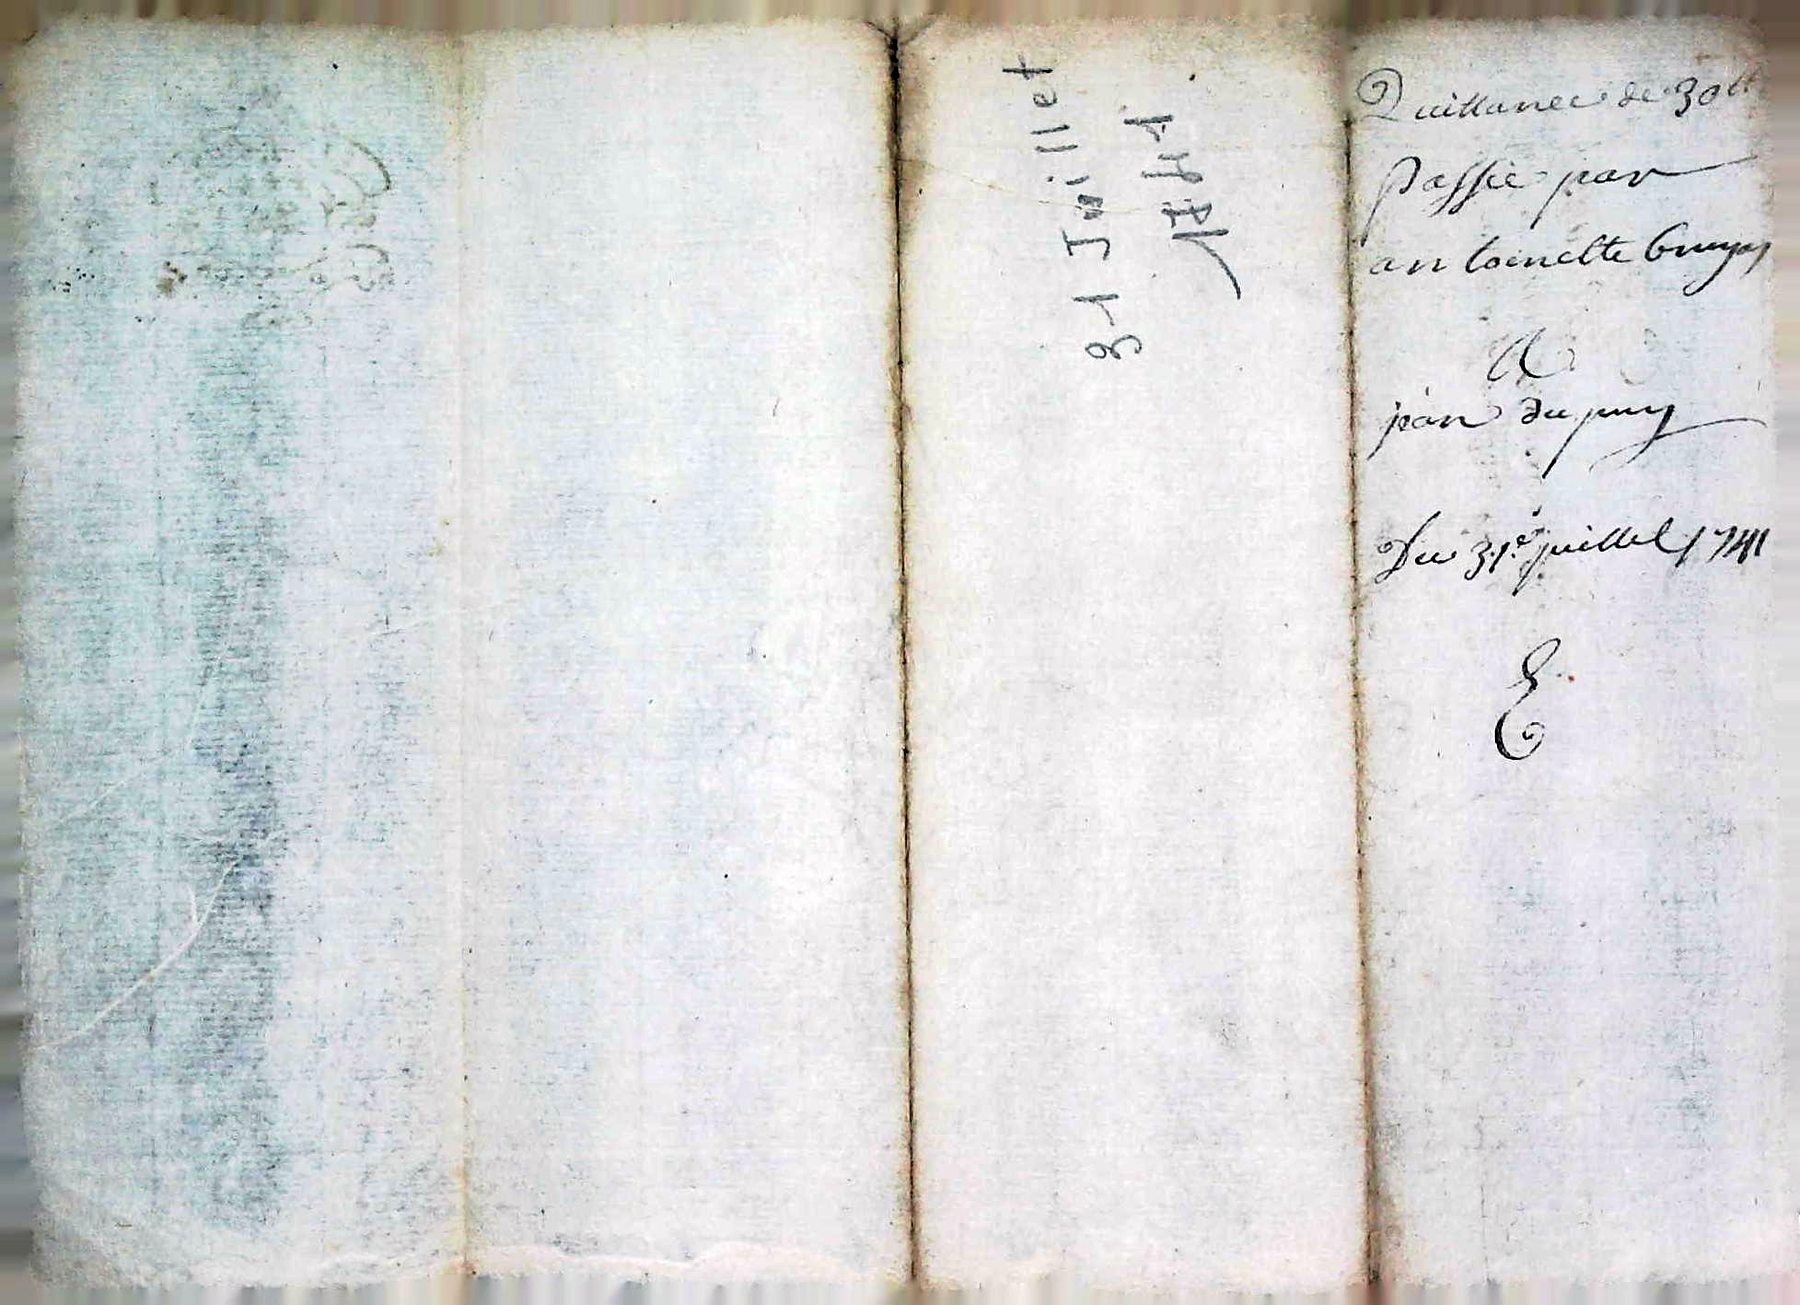 31 Juillet
1741
Quittance de 30 tt
passée par
antoinette bruyas
A
jean dupuy
Du 31e juillet 1741
E